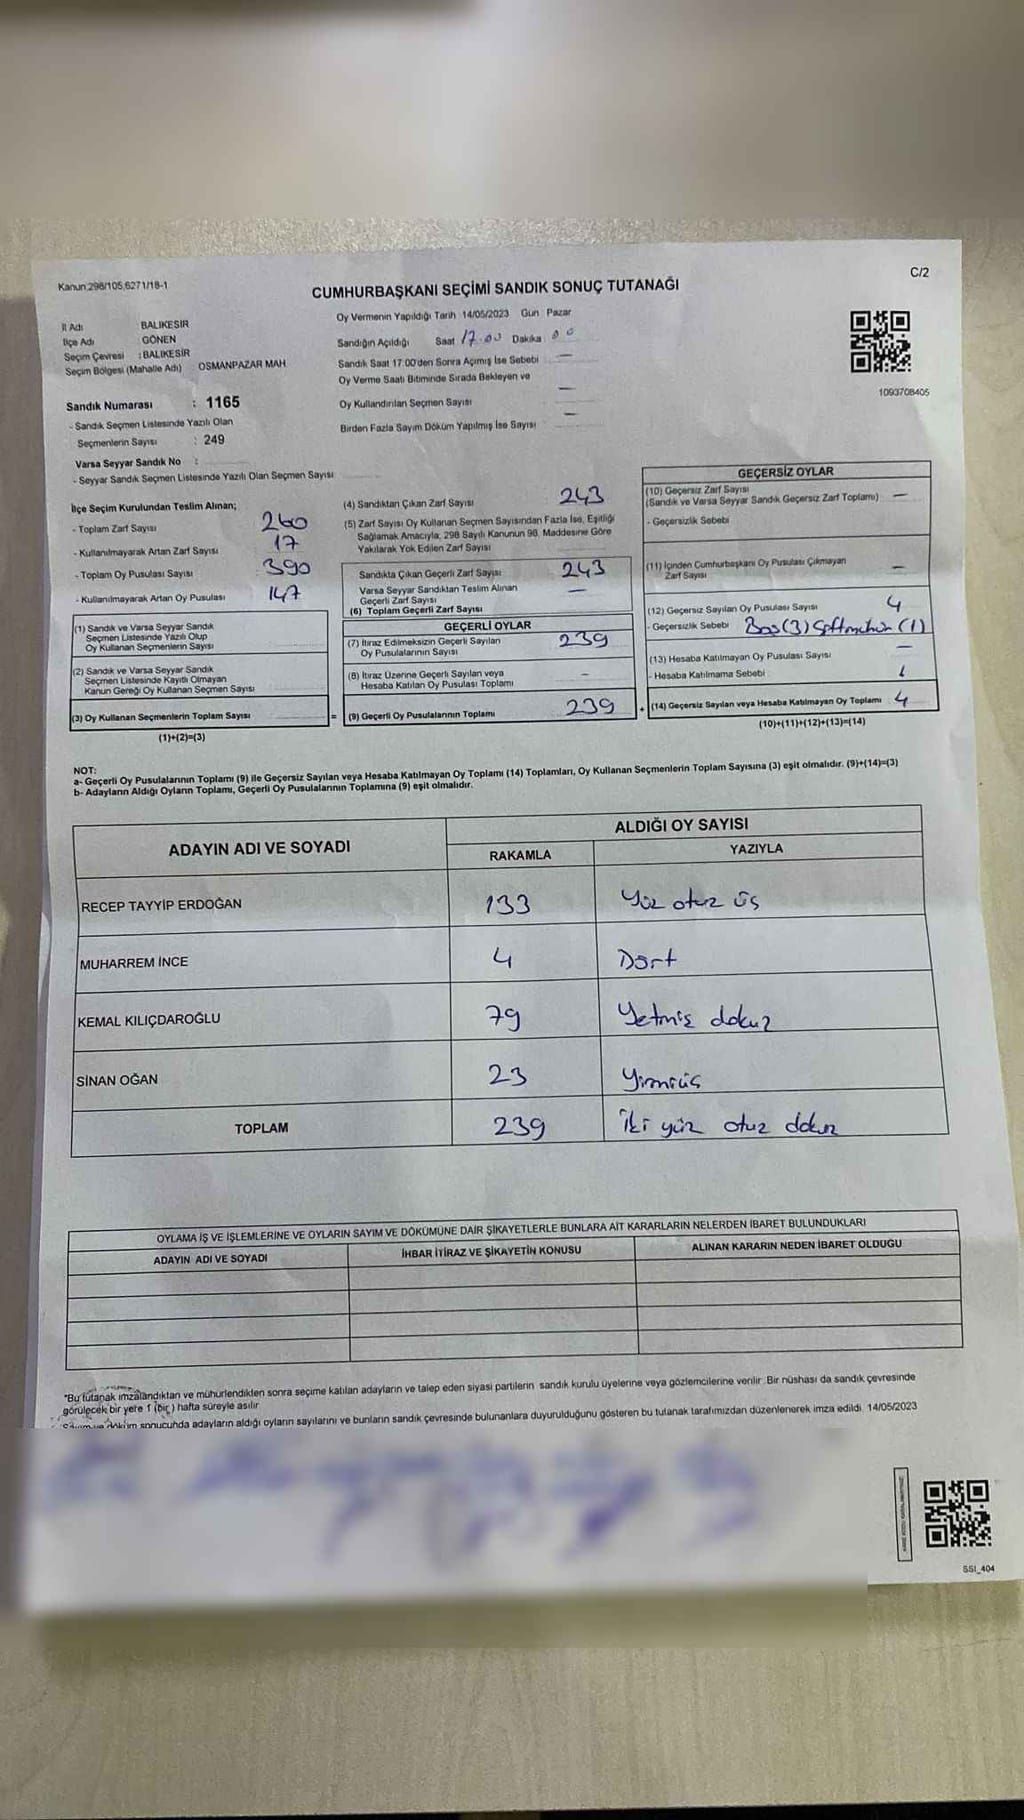 Kanun:298/105,6271/18-1
C/2
CUMHURBAŞKANI SEÇİMİ SANDIK SONUÇ TUTANAĞI
İl Adı BALIKESİR
İlçe Adı GÖNEN
Seçim Çevresi : BALIKESİR
Seçim Bölgesi (Mahalle Adı) OSMANPAZAR MAH
Sandık Numarası : 1165
- Sandık Seçmen Listesinde Yazılı Olan
Seçmenlerin Sayısı : 249
Varsa Seyyar Sandık No :
- Seyyar Sandık Seçmen Listesinde Yazılı Olan Seçmen Sayısı
Oy Vermenin Yapıldığı Tarih 14/05/2023 Gün Pazar
Sandığın Açıldığı Saat 17.00 Dakika 00
Sandık Saat 17:00'den Sonra Açımış İse Sebebi —
Oy Verme Saati Bitiminde Sırada Bekleyen ve
Oy Kullandırılan Seçmen Sayısı —
Birden Fazla Sayım Döküm Yapılmış İse Sayısı —
1093708405
İlçe Seçim Kurulundan Teslim Alınan;
- Toplam Zarf Sayısı 260
- Kullanılmayarak Artan Zarf Sayısı 17
- Toplam Oy Pusulası Sayısı 390
- Kullanılmayarak Artan Oy Pusulası 147
(1) Sandık ve Varsa Seyyar Sandık
Seçmen Listesinde Yazılı Olup
Oy Kullanan Seçmenlerin Sayısı
(2) Sandık ve Varsa Seyyar Sandık
Seçmen Listesinde Kayıtlı Olmayan
Kanun Gereği Oy Kullanan Seçmen Sayısı
(3) Oy Kullanan Seçmenlerin Toplam Sayısı
(1)+(2)=(3)
(4) Sandıktan Çıkan Zarf Sayısı 243
(5) Zarf Sayısı Oy Kullanan Seçmen Sayısından Fazla İse, Eşitliği
Sağlamak Amacıyla, 298 Sayılı Kanunun 98. Maddesine Göre
Yakılarak Yok Edilen Zarf Sayısı
Sandıkta Çıkan Geçerli Zarf Sayısı 243
Varsa Seyyar Sandıktan Teslim Alınan
Geçerli Zarf Sayısı —
(6) Toplam Geçerli Zarf Sayısı
GEÇERLİ OYLAR
(7) İtiraz Edilmeksizin Geçerli Sayılan
Oy Pusulalarının Sayısı 239
(8) İtiraz Üzerine Geçerli Sayılan veya
Hesaba Katılan Oy Pusulası Toplamı -
= (9) Geçerli Oy Pusulalarının Toplamı 239 +
GEÇERSİZ OYLAR
(10) Geçersiz Zarf Sayısı
(Sandık ve Varsa Seyyar Sandık Geçersiz Zarf Toplamı) —
- Geçersizlik Sebebi
(11) İçinden Cumhurbaşkanı Oy Pusulası Çıkmayan
Zarf Sayısı —
(12) Geçersiz Sayılan Oy Pusulası Sayısı 4
- Geçersizlik Sebebi Boş(3) (1)
(13) Hesaba Katılmayan Oy Pusulası Sayısı —
- Hesaba Katılmama Sebebi
(14) Geçersiz Sayılan veya Hesaba Katılmayan Oy Toplamı 4
(10)+(11)+(12)+(13)=(14)
NOT:
a- Geçerli Oy Pusulalarının Toplamı (9) ile Geçersiz Sayılan veya Hesaba Katılmayan Oy Toplamı (14) Toplamları, Oy Kullanan Seçmenlerin Toplam Sayısına (3) eşit olmalıdır. (9)+(14)=(3)
b- Adayların Aldığı Oyların Toplamı, Geçerli Oy Pusulalarının Toplamına (9) eşit olmalıdır.
ADAYIN ADI VE SOYADI
ALDIĞI OY SAYISI
RAKAMLA YAZIYLA
RECEP TAYYİP ERDOĞAN 133 Yüz otuz üç
MUHARREM İNCE 4 Dört
KEMAL KILIÇDAROĞLU 79 Yetmiş dokuz
SİNAN OĞAN 23 Yirmiüç
TOPLAM 239 İki yüz otuz dokuz
OYLAMA İŞ VE İŞLEMLERİNE VE OYLARIN SAYIM VE DÖKÜMÜNE DAİR ŞİKAYETLERLE BUNLARA AİT KARARLARIN NELERDEN İBARET BULUNDUKLARI
ADAYIN ADI VE SOYADI İHBAR İTİRAZ VE ŞİKAYETİN KONUSU ALINAN KARARIN NEDEN İBARET OLDUĞU
"Bu tutanak imzalandıktan ve mühürlendikten sonra seçime katılan adayların ve talep eden siyasi partilerin sandık kurulu üyelerine veya gözlemcilerine verilir. Bir nüshası da sandık çevresinde
görülecek bir yere 1 (bir) hafta süreyle asılır.
Sayım ve döküm sonucunda adayların aldığı oyların sayılarını ve bunların sandık çevresinde bulunanlara duyurulduğunu gösteren bu tutanak tarafımızdan düzenlenerek imza edildi. 14/05/2023
SSI_404